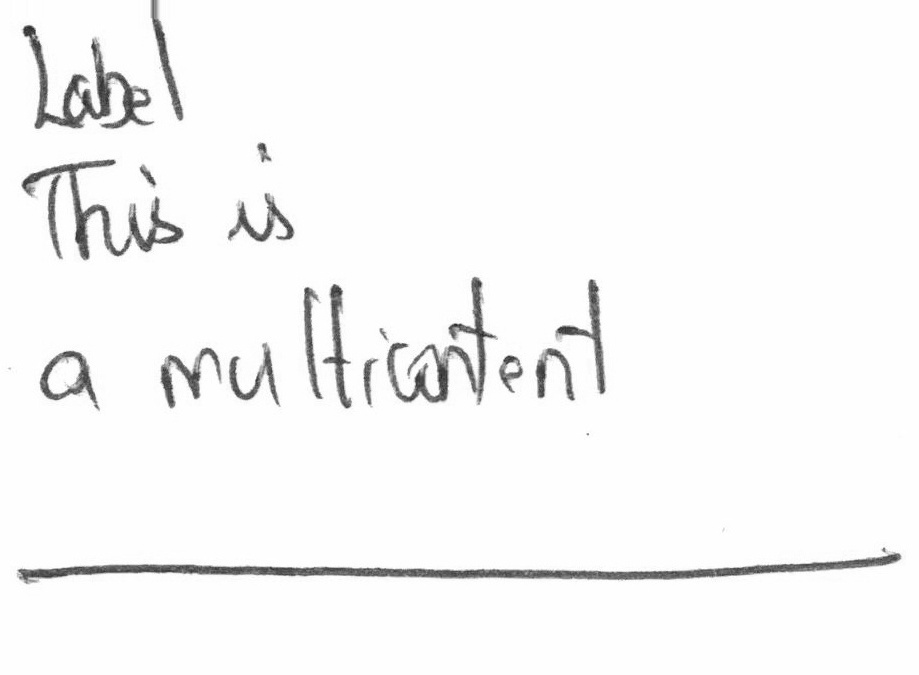 Label
This is
a multicontent